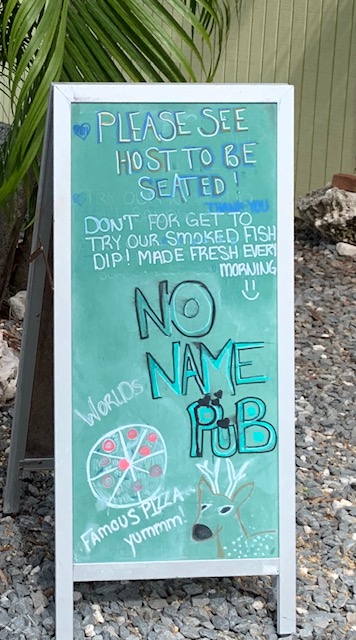 PLEASE SEE
HOST TO BE
SEATED!
THANK YOU
DON'T FOR GET TO
TRY OUR SMOKED FISH
DIP! MADE FRESH EVERY
MORNING
NO
NAME
PUB
WORLDS
FAMOUS PIZZA
yummm!